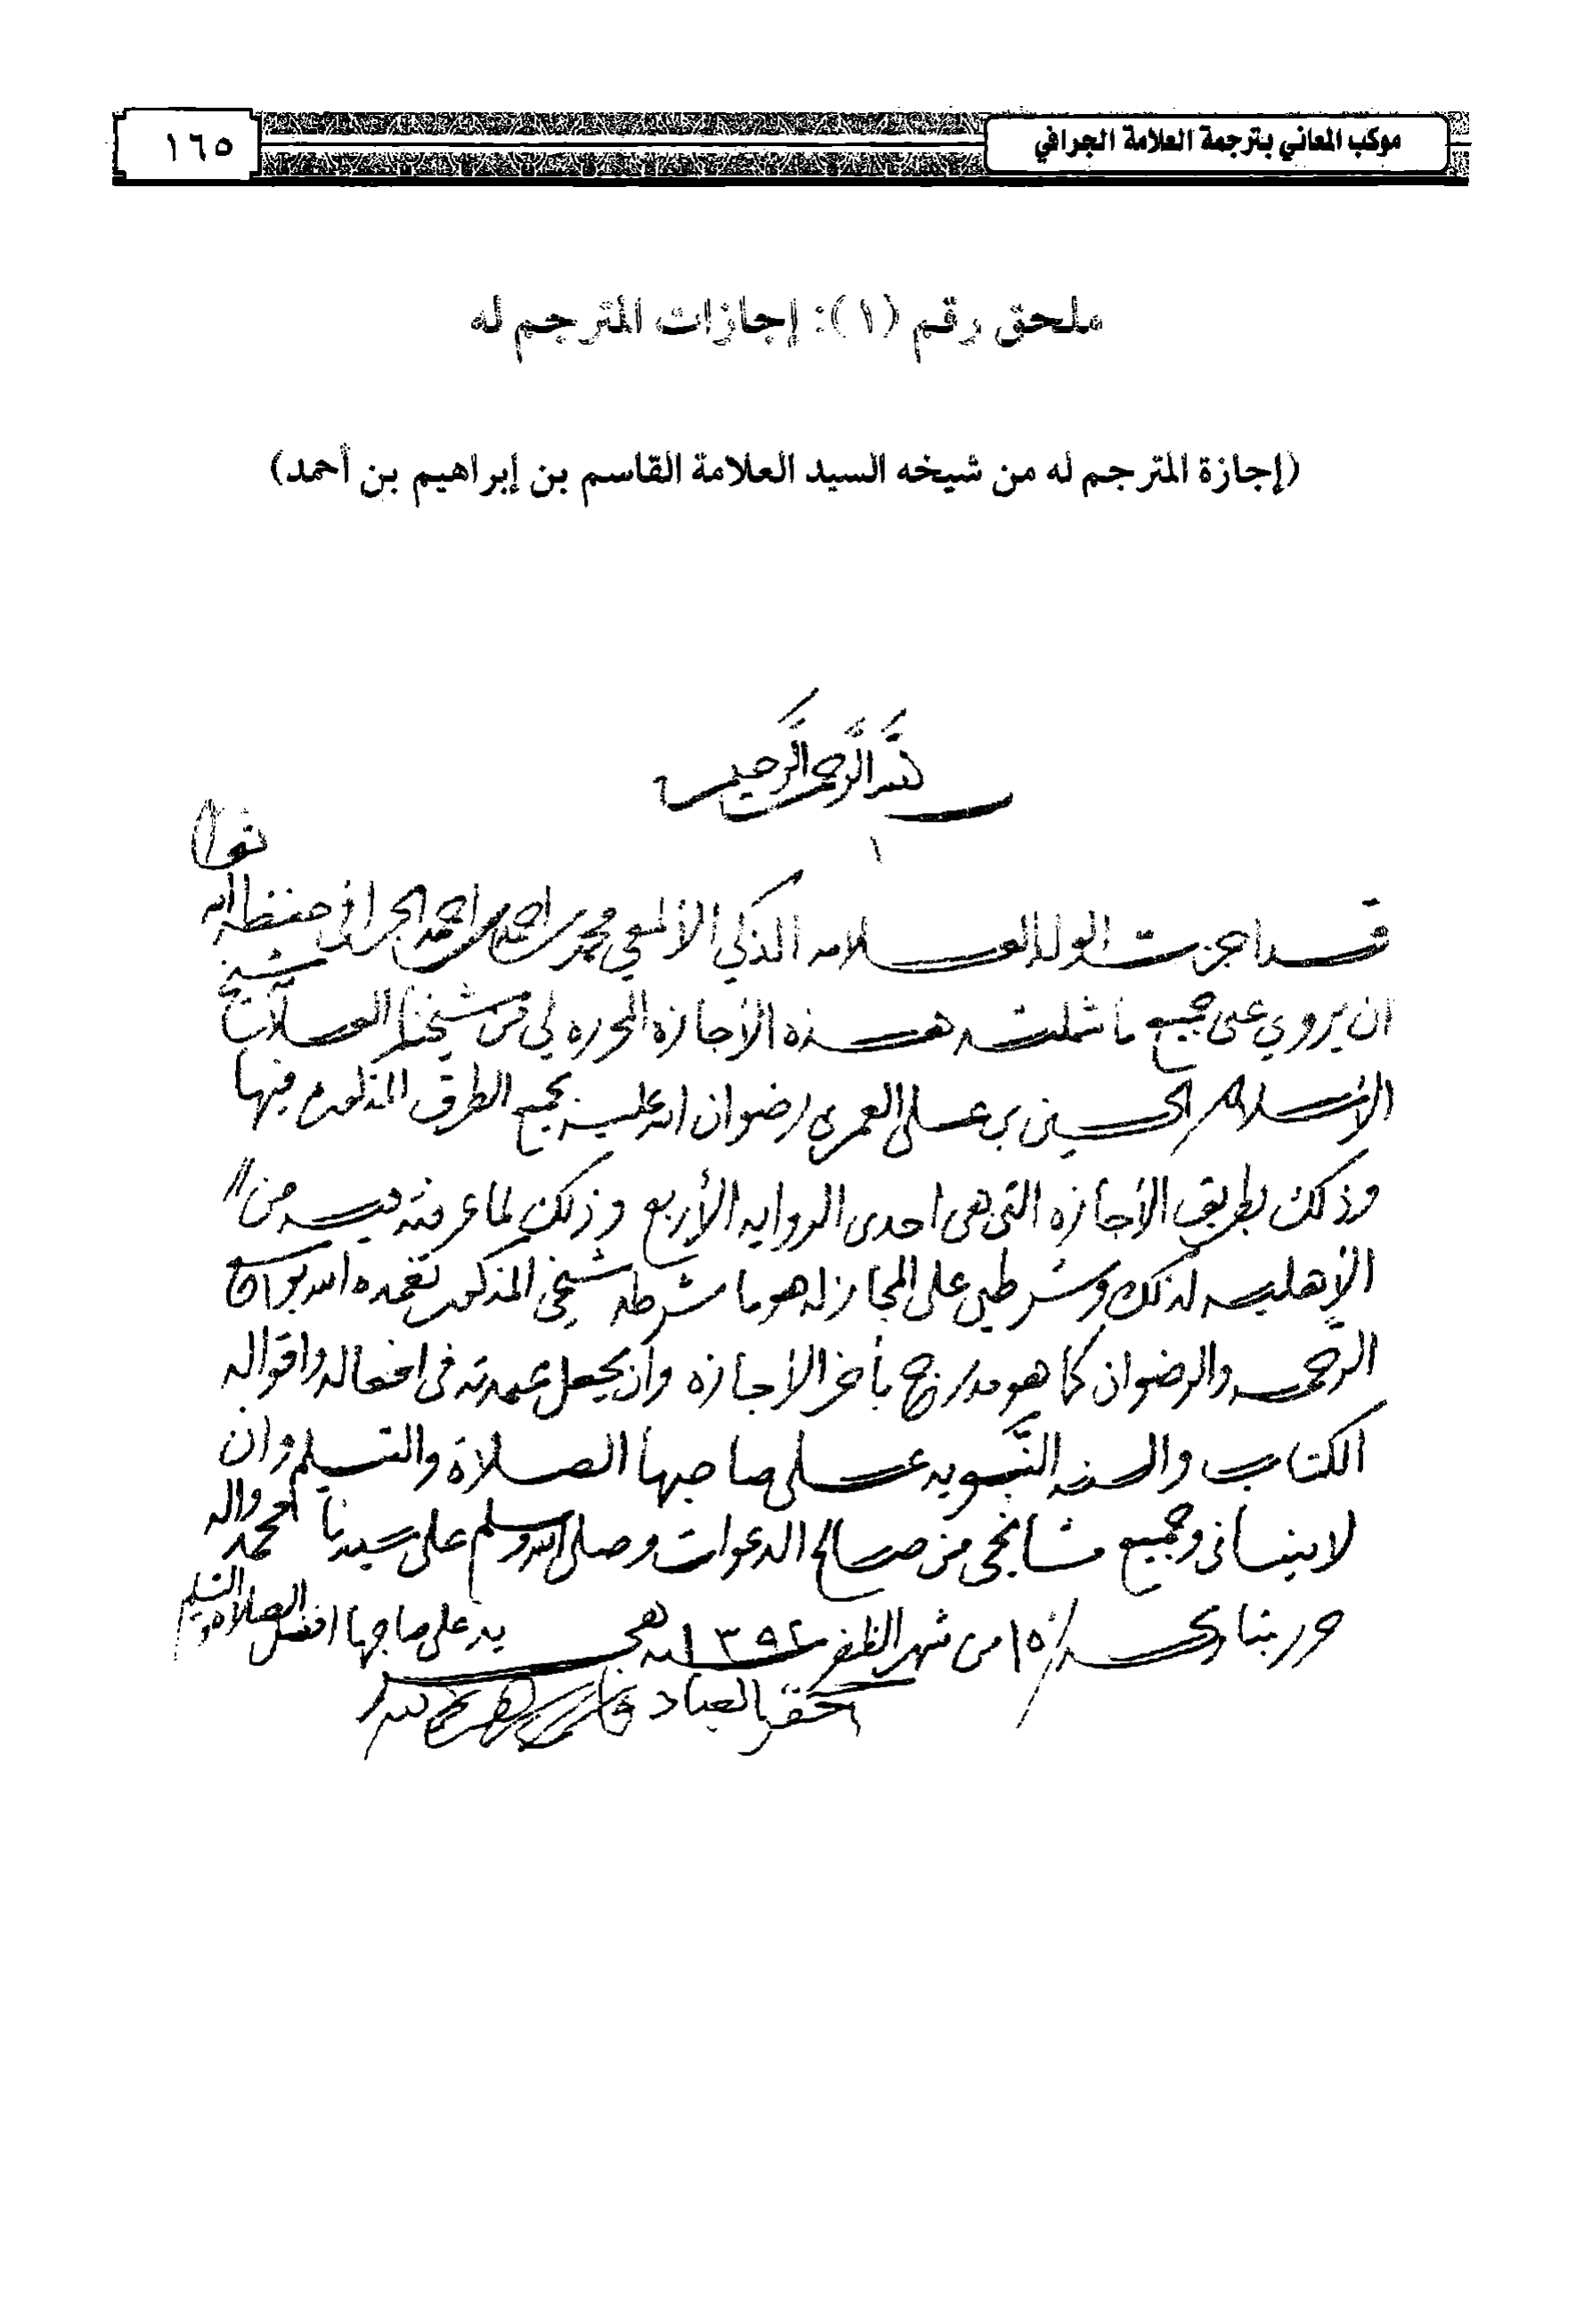 موكب المعاني بترجمة العلامة الجرافي
١٦٥
ملحق رقم (١): إجازات المترجم له
(إجازة المترجم له من شيخه السيد العلامة القاسم بن إبراهيم بن أحمد)
بسم الله الرحمن الرحيم
قد اجزت الولد العلامه الذكي الألمعي محمد بن احمد بن احمد الجرافي حفظه الله
ان يروي عني جميع ما شملته هذه الأجازة المحرره لي من شيخنا شيخ
الأسلام الحسين بن علي العمري رضوان الله عليه بجميع الطرق المذكوره فيها
وذلك بطريق الأجازه التي هي احدى الروايه الأربع وذلك لما عرفته فيه من
الأهليه لذلك وشرطي على المجاز له هو ما شرطه شيخي المذكور تغمده الله بواسع
الرحمه والرضوان كما هو مدرج بأخر الأجازه وأن يجعل عمدته في افعاله واقواله
الكتاب والسنه النبويه على صاحبها الصلاة والتسليم وان
لا ينساني وجميع مشايخي من صالح الدعوات وصلى الله وسلم على سيدنا محمد واله
حرر بتاريخه ١٥ من شهر الظفر سنه ١٣٩٤ هجريه على صاحبها افضل الصلاة والتسليم
احقر العباد قاسم بن ابراهيم